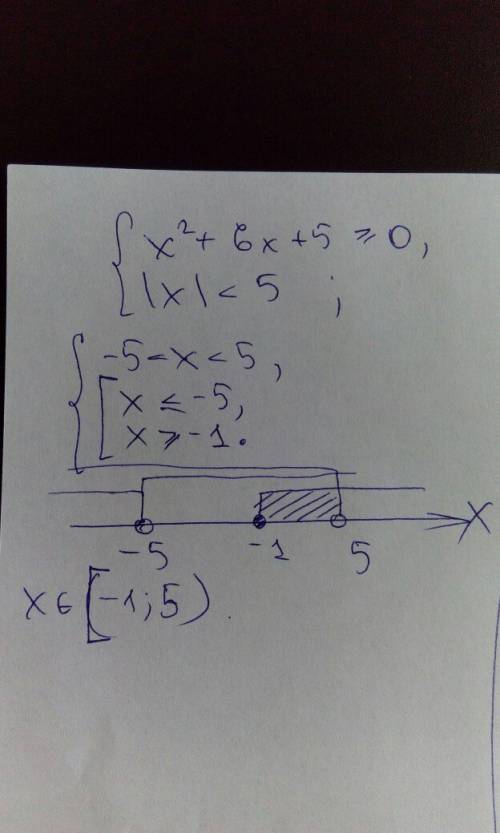 { x² + 6x + 5 ≥ 0,
|x| < 5 ;
{ -5 < x < 5 ,
[ x ≤ -5,
x ≥ -1.
-5 -1 5 X
x ∈ [-1; 5) .